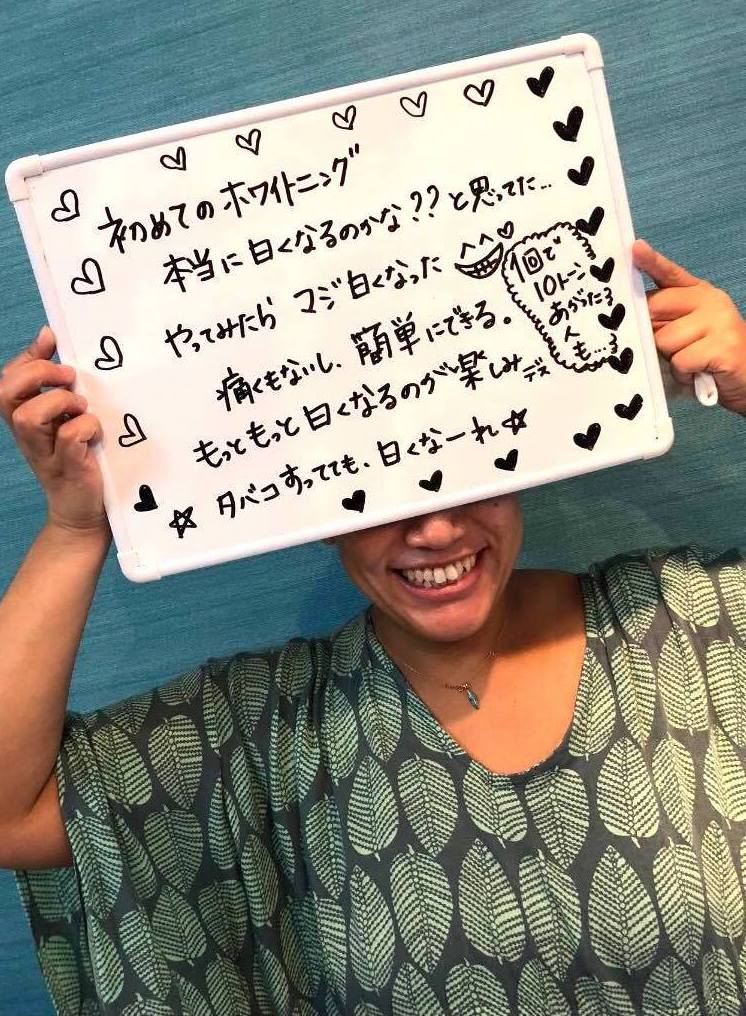 初めてのホワイトニング
本当に白くなるのかな??と思ってた...
やってみたら マジ白くなった
痛くもないし、簡単にできる。
もっともっと白くなるのが楽しみデス
☆ タバコすってても、白くなーれ☆
1回で
10トーン
あがったる
人
も...